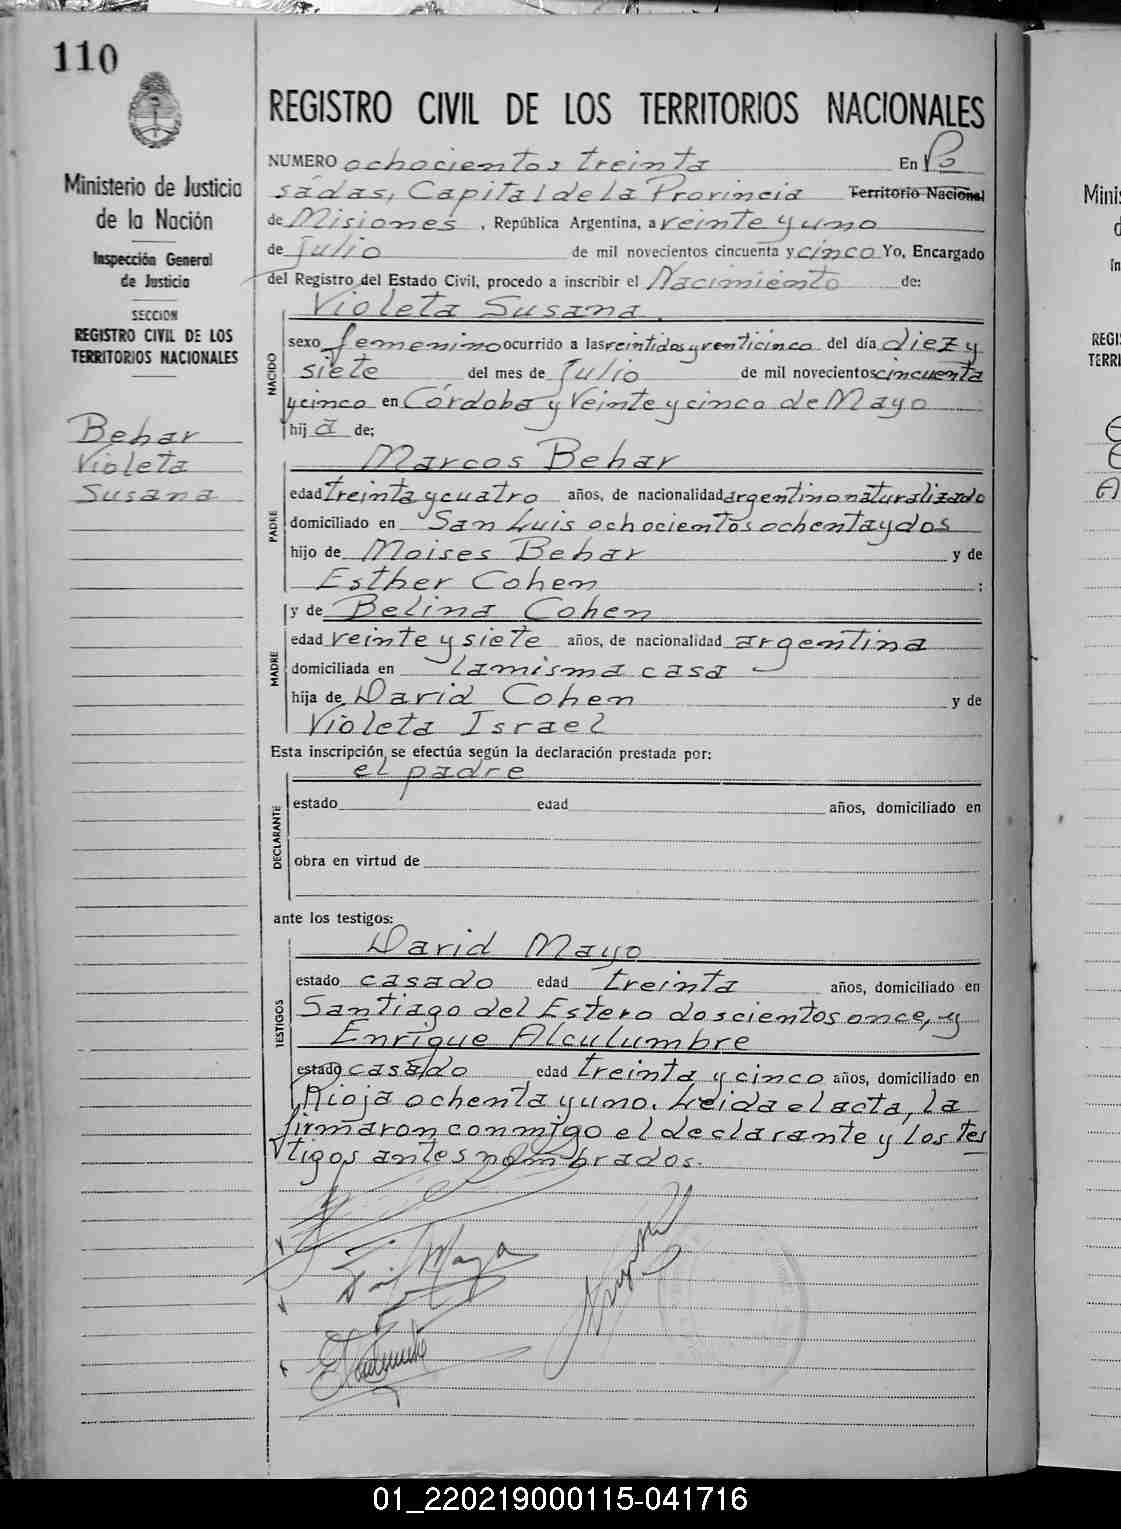 110
Ministerio de Justicia
de la Nación
Inspección General
de Justicia
SECCION
REGISTRO CIVIL DE LOS
TERRITORIOS NACIONALES
Behar
Violeta
Susana
REGISTRO CIVIL DE LOS TERRITORIOS NACIONALES
NUMERO ochocientos treinta En Po
sadas, Capital de la Provincia Territorio Nacional
de Misiones, República Argentina, a veinte y uno
de Julio de mil novecientos cincuenta y cinco Yo, Encargado
del Registro del Estado Civil, procedo a inscribir el Nacimiento de:
Violeta Susana.
NACIDO
sexo femenino ocurrido a las veintidos y venticinco del día diez y
siete del mes de Julio de mil novecientos cincuenta
y cinco en Córdoba y Veinte y cinco de Mayo
hija de;
PADRE
Marcos Behar
edad treinta y cuatro años, de nacionalidad argentino naturalizado
domiciliado en San Luis ochocientos ochenta y dos
hijo de Moises Behar y de
Esther Cohen ;
MADRE
y de Belina Cohen
edad veinte y siete años, de nacionalidad argentina
domiciliada en la misma casa
hija de David Cohen y de
Violeta Israel
Esta inscripción se efectúa según la declaración prestada por:
DECLARANTE
el padre
estado edad años, domiciliado en
obra en virtud de
ante los testigos:
TESTIGOS
David Mayo
estado casado edad treinta años, domiciliado en
Santiago del Estero doscientos once, y
Enrique Alculumbre
estado casado edad treinta y cinco años, domiciliado en
Rioja ochenta y uno. Leida el acta, la
firmaron conmigo el declarante y los tes
tigos antes nombrados.
Mayo
01_220219000115-041716